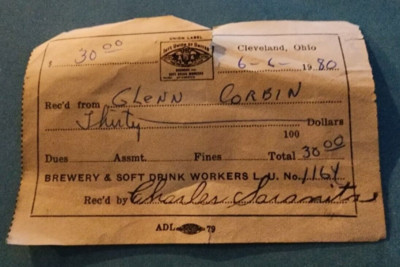 UNION LABEL
$ 30 00 Cleveland, Ohio
6-6- 1980
Rec'd from GLENN CORBIN
Thirty 100 Dollars
Dues Assmt. Fines Total 30 00
BREWERY & SOFT DRINK WORKERS L. U. No. 1164
Rec'd by Charles
ADL 79